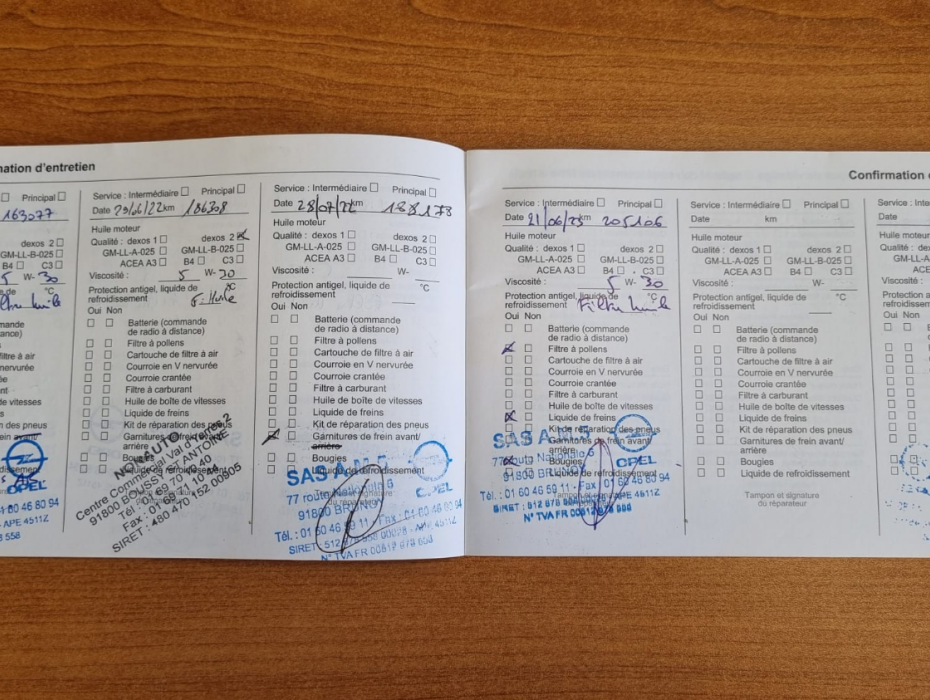 mation d'entretien
Principal
163077
dexos 2
GM-LL-B-025
C3
5 W- 30
°C
Filtre huile
Service : Intermédiaire Principal
Date 29/06/22 km 186308
Huile moteur
Qualité : dexos 1 dexos 2
GM-LL-A-025 GM-LL-B-025
ACEA A3 B4 C3
Viscosité : 5 W- 30
Protection antigel, liquide de °C
refroidissement F. Huile
Oui Non
Batterie (commande
de radio à distance)
Filtre à pollens
Cartouche de filtre à air
Courroie en V nervurée
Courroie crantée
Filtre à carburant
Huile de boîte de vitesses
Liquide de freins
Kit de réparation des pneus
Garnitures de frein avant/
arrière
Bougies
Liquide de refroidissement
Centre Commercial Val d'Yerres 2
91800 BOUSSY ST ANTOINE
SIRET : 480 470 152 00605
Service : Intermédiaire Principal
Date 28/07/22 km 188178
Huile moteur
Qualité : dexos 1 dexos 2
GM-LL-A-025 GM-LL-B-025
ACEA A3 B4 C3
Viscosité : W-
Protection antigel, liquide de °C
refroidissement
Oui Non
Batterie (commande
de radio à distance)
Filtre à pollens
Cartouche de filtre à air
Courroie en V nervurée
Courroie crantée
Filtre à carburant
Huile de boîte de vitesses
Liquide de freins
Kit de réparation des pneus
Garnitures de frein avant/
arrière
Bougies
Liquide de refroidissement
SAS
OPEL
77 route Nationale 6
91800 BRUNOY
Tél. : 01 60 46 59 11 - Fax : 01 60 46 80 94
Confirmation
Service : Intermédiaire Principal
Date 21/06/23 km 205106
Huile moteur
Qualité : dexos 1 dexos 2
GM-LL-A-025 GM-LL-B-025
ACEA A3 B4 C3
Viscosité : 5 W- 30
Protection antigel, liquide de °C
refroidissement Filtre huile
Oui Non
Batterie (commande
de radio à distance)
Filtre à pollens
Cartouche de filtre à air
Courroie en V nervurée
Courroie crantée
Filtre à carburant
Huile de boîte de vitesses
Liquide de freins
Kit de réparation des pneus
Garnitures de frein avant/
arrière
Bougies
Liquide de refroidissement
SAS
OPEL
77 route Nationale 6
91800 BRUNOY
Tél. : 01 60 46 59 11 - Fax : 01 60 46 80 94
Service : Intermédiaire Principal
Date km
Huile moteur
Qualité : dexos 1 dexos 2
GM-LL-A-025 GM-LL-B-025
ACEA A3 B4 C3
Viscosité : W-
Protection antigel, liquide de °C
refroidissement
Oui Non
Batterie (commande
de radio à distance)
Filtre à pollens
Cartouche de filtre à air
Courroie en V nervurée
Courroie crantée
Filtre à carburant
Huile de boîte de vitesses
Liquide de freins
Kit de réparation des pneus
Garnitures de frein avant/
arrière
Bougies
Liquide de refroidissement
Tampon et signature
du réparateur
Date
Huile moteur
Viscosité :
Oui Non